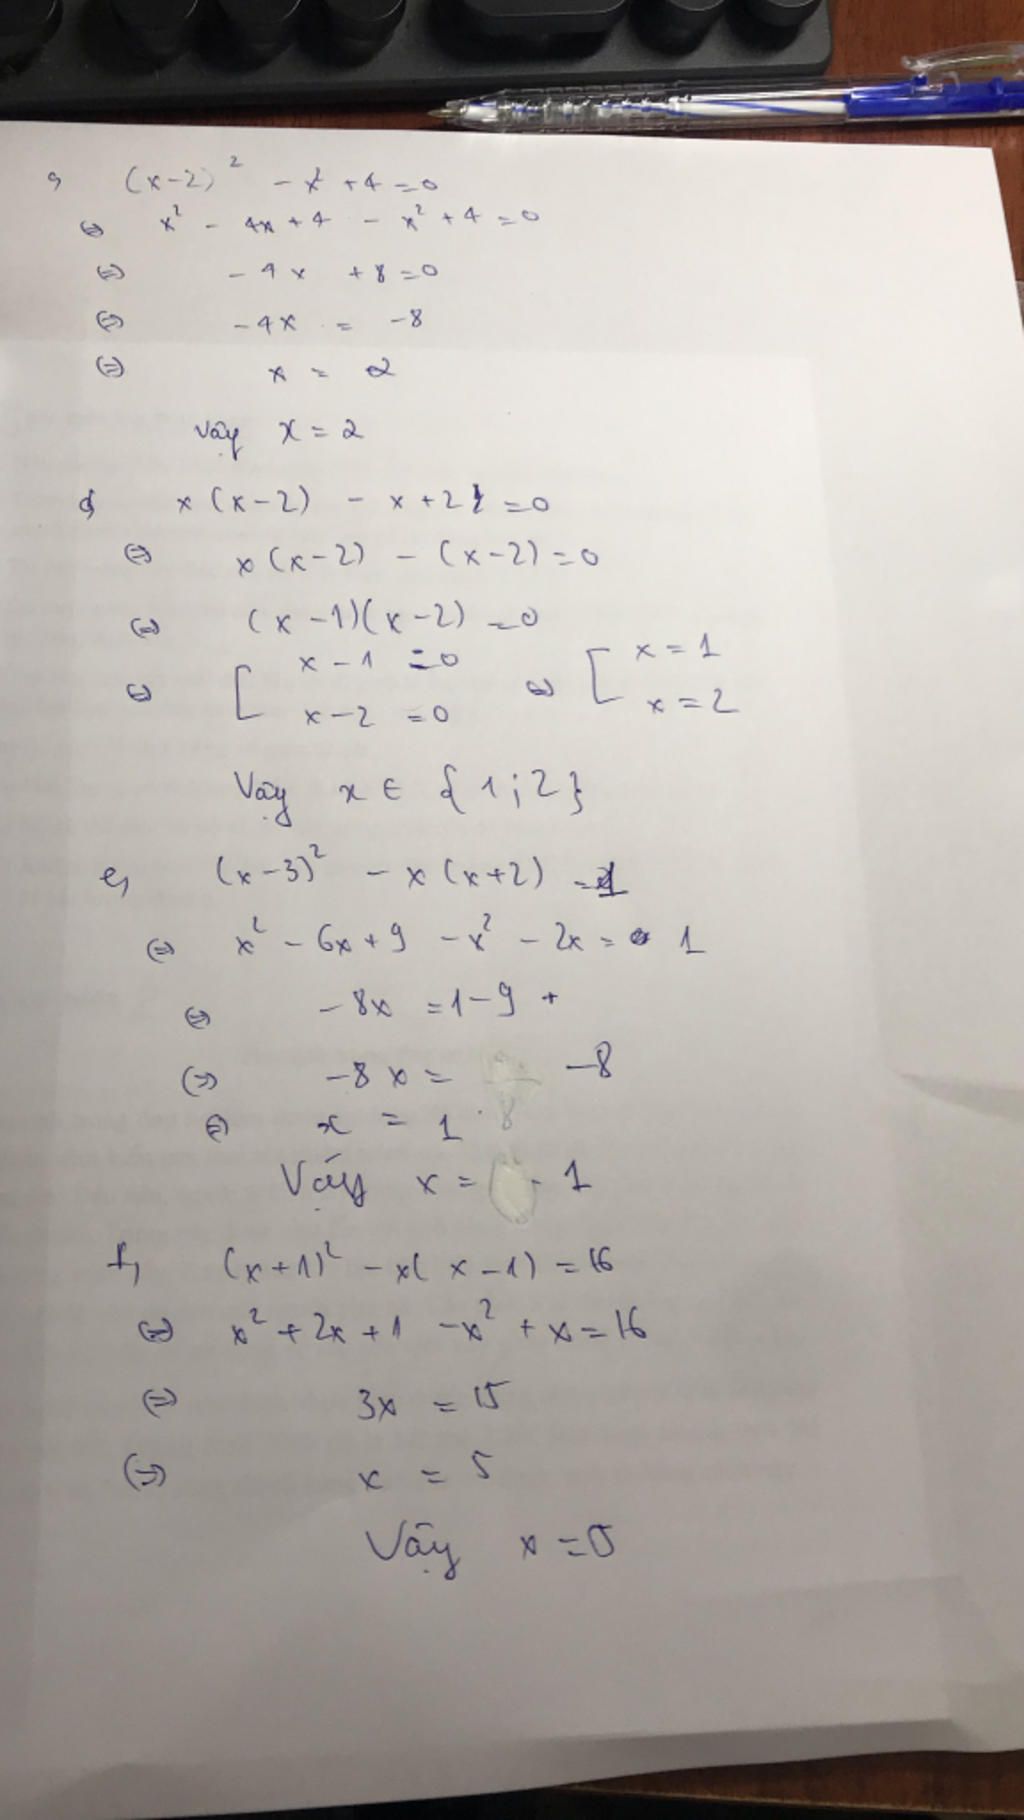 c, (x-2)² - x² + 4 = 0
⇔ x² - 4x + 4 - x² + 4 = 0
⇔ -4x + 8 = 0
⇔ -4x = -8
⇔ x = 2
Vậy x = 2
d, x(x-2) - x + 2 = 0
⇔ x(x-2) - (x-2) = 0
⇔ (x-1)(x-2) = 0
⇔ [ x-1 = 0 ⇔ [ x = 1
x-2 = 0 x = 2
Vậy x ∈ {1;2}
e, (x-3)² - x(x+2) = 1
⇔ x² - 6x + 9 - x² - 2x = 1
⇔ -8x = 1-9 +
⇔ -8x = -8
⇔ x = 1
Vậy x = 1
f, (x+1)² - x(x-1) = 16
⇔ x² + 2x + 1 - x² + x = 16
⇔ 3x = 15
⇔ x = 5
Vậy x = 5